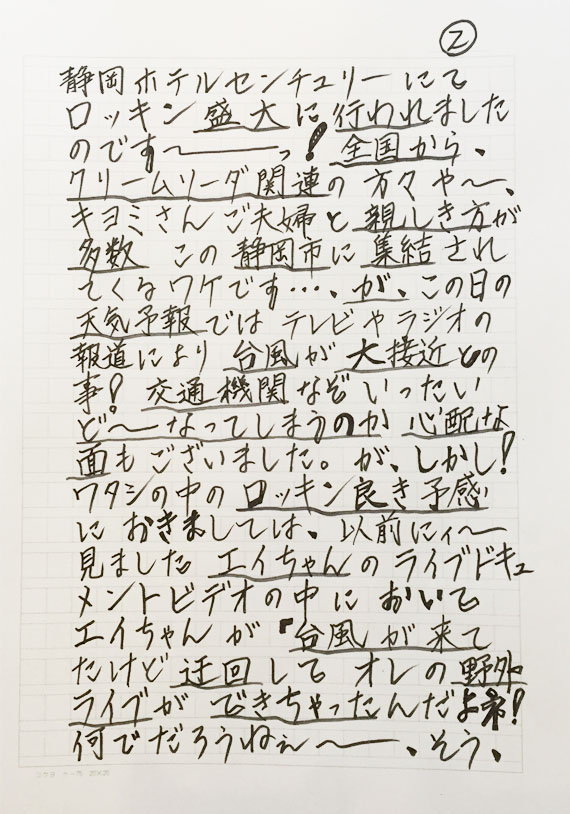 ②
静岡ホテルセンチュリーにて
ロッキン盛大に行われました
のです〜――っ！全国から、
クリームソーダ関連の方々や〜、
キヨミさんご夫婦と親しき方が
多数 この静岡市に集結され
てくるワケです…、が、この日の
天気予報ではテレビやラジオの
報道により台風が大接近との
事！交通機関なぞいったい
ど〜なってしまうのか心配な
面もございました。が、しかし！
ワタシの中のロッキン良き予感
におきましては、以前にィ〜
見ました エイちゃんのライブドキュ
メントビデオの中において
エイちゃんが『台風が来て
たけど迂回してオレの野外
ライブができちゃったんだよネ！
何でだろうねぇ〜―、そう、